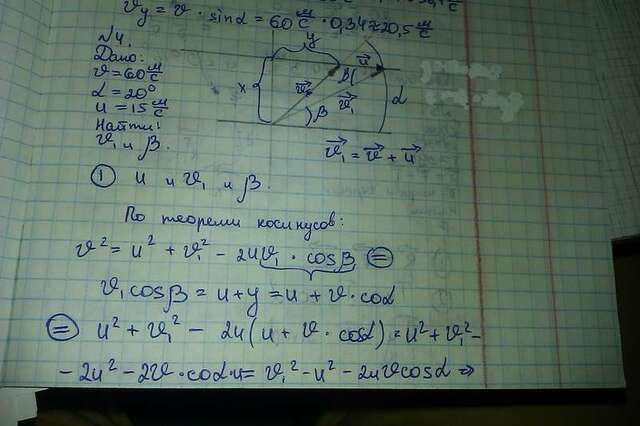 ϑy = ϑ · sinα = 60 м/с · 0,34 ≈ 20,5 м/с
№4.
Дано:
ϑ = 60 м/с
α = 20°
u = 15 м/с
Найти:
ϑ₁ и β.
y
x
u
β
ϑ
ϑ₁
β
α
ϑ₁ = ϑ + u
① u и ϑ₁ и β.
По теореми косинусов:
ϑ² = u² + ϑ₁² - 2uϑ₁ · cosβ =
ϑ₁cosβ = u + y = u + ϑ · coα
= u² + ϑ₁² - 2u(u + ϑ · cosα) = u² + ϑ₁² -
- 2u² - 2ϑ · coα · u = ϑ₁² - u² - 2uϑcosα ⇒